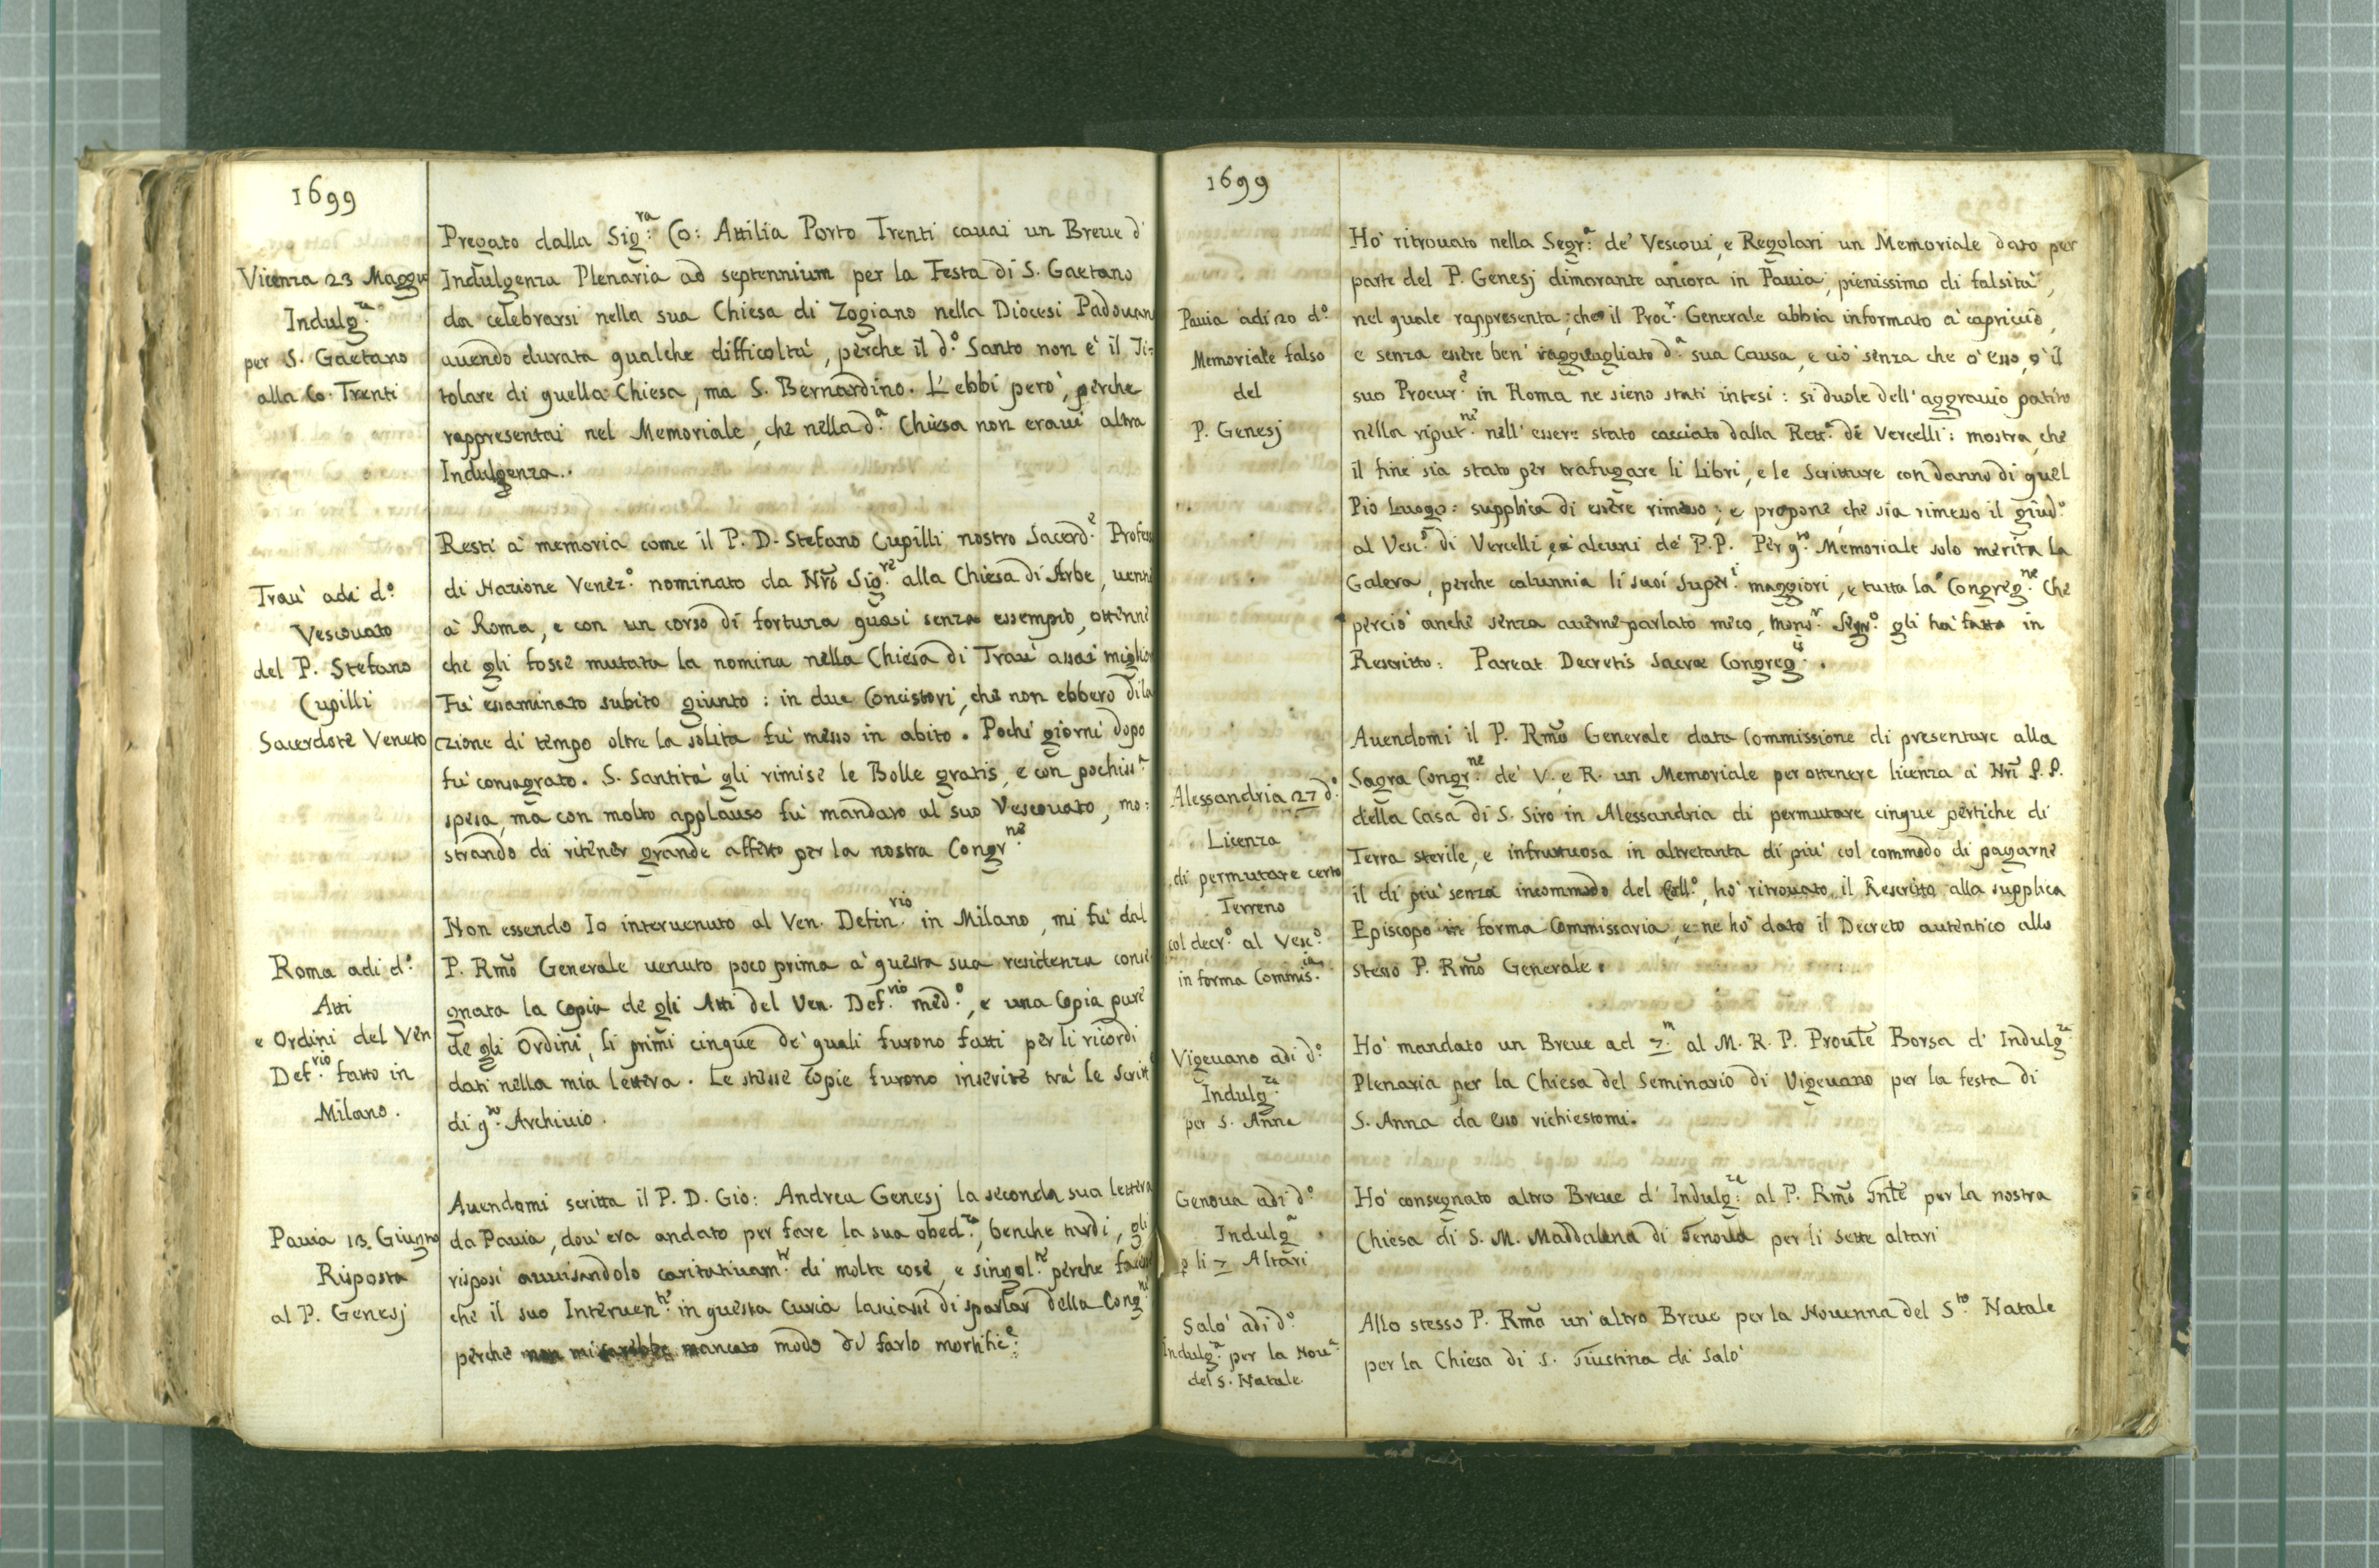 1699
Vicenza 23 Maggio
Indulg.a
per S. Gaetano
alla Co. Trenti
Pregato dalla Sig.ra Co: Attilia Porto Trenti cauai un Breue d'
Indulgenza Plenaria ad septennium per la Festa di S. Gaetano
da celebrarsi nella sua Chiesa di Zogiano nella Diocesi Padouan
auendo durata qualche difficoltà, perche il d.o Santo non è il Ti:
tolare di quella Chiesa, ma S. Bernardino. L'ebbi però, perche
rappresentai nel Memoriale, che nella d.a Chiesa non eraui altra
Indulgenza.
Traù adi d.o
Vescouato
del P. Stefano
Cupilli
Sacerdote Veneto
Resti à memoria come il P. D. Stefano Cupilli nostro Sacerd.e Profess
di Nazione Venez.o nominato da Nrõ Sig.re alla Chiesa di Arbe, uenne
à Roma, e con un corso di fortuna quasi senza essempio, ottenne
che gli fosse mutata la nomina nella Chiesa di Traù assai miglior
Fù essaminato subito giunto: in due Concistori, che non ebbero dila
czione di tempo oltre la solita fù messo in abito. Pochi giorni dopo
fù consagrato. S. Santità gli rimise le Bolle gratis, e con pochiss.a
spesa, ma con molto applauso fù mandato al suo Vescouato, mo:
strando di ritener grande affetto per la nostra Congr.ne
Roma adi d.o
Atti
e Ordini del Ven
Def.rio fatto in
Milano.
Non essendo Io interuenuto al Ven. Defin.rio in Milano, mi fù dal
P. Rmõ Generale uenuto poco prima à questa sua residenza conse
gnata la Copia de gli Atti del Ven. Def.rio med.o, e una Copia pure
de gli Ordini, li primi cinque de' quali furono fatti per li ricordi
dati nella mia lettera. Le stesse Copie furono inserite trà le Scritt
di q.to Archiuio.
Pauia 13. Giugno
Risposta
al P. Genesj
Auendomi scritta il P. D. Gio: Andrea Genesj la seconda sua lettera
da Pauia, dou'era andato per fare la sua obed.za, benche tardi, gli
risposi auuisandolo caritatiuam.te di molte cose, e singol.te perche facesse
che il suo Interuen.te in questa Curia lasciasse di sparlar della Cong.ne
perche non mi sarebbe mancato modo di farlo mortific.e
1699
Pauia adi 20 d.o
Memoriale falso
del
P. Genesj
Hò ritrouato nella Segr.a de' Vescoui, e Regolari un Memoriale dato per
parte del P. Genesj dimorante ancora in Pauia, pienissimo di falsità,
nel quale rappresenta; che il Proc.r Generale abbia informato à capricio,
e senza essere ben' ragguagliato d.a sua Causa, e ciò senza che ò esso, ò il
suo Procur.e in Roma ne sieno stati intesi: si duole dell'aggrauio patito
nella riput.ne nell'essere stato cacciato dalla Rett.a di Vercelli: mostra, che
il fine sia stato per trafugare li Libri, e le Scritture con danno di quel
Pio Luogo: supplica di essere rimesso; e propone, che sia rimesso il giud.o
al Vesc.o di Vercelli, ed alcuni de' P.P. Per q.to Memoriale solo merita la
Galera, perche calunnia li suoi Super.i maggiori, e tutta la Congreg.ne Che
perciò anche senza auerne parlato meco, Mons.r Segr.o gli hà fatto in
Rescritto: Pareat Decretis Sacræ Congreg.is.
Alessandria 27 d.o
Licenza
di permutare certo
Terreno
col decr.o al Vesc.o
in forma Commis.ia
Auendomi il P. Rmõ Generale data Commissione di presentare alla
Sagra Congr.ne de' V. e R. un Memoriale per ottenere licenza à Nrĩ P.P.
della Casa di S. Siro in Alessandria di permutare cinque pertiche di
Terra sterile, e infruttuosa in altretanta di più col commodo di pagarne
il di più senza incommodo del Coll.o, hò ritrouato il Rescritto alla supplica
Episcopo in forma Commissaria, e ne hò dato il Decreto autentico allo
stesso P. Rmõ Generale.
Vigeuano adi d.o
Indulg.za
per S. Anna
Hò mandato un Breue ad 7.m al M. R. P. Proule Borsa d'Indulg.za
Plenaria per la Chiesa del Seminario di Vigeuano per la festa di
S. Anna da esso richiestomi.
Genoua adi d.o
Indulg.a
p li 7 Altari
Hò consegnato altro Breue d'Indulg.za al P. Rmõ Gnle per la nostra
Chiesa di S. M. Maddalena di Genoua per li sette altari
Salò adi d.o
Indulg.a per la Nou.a
del S. Natale.
Allo stesso P. Rmõ un'altro Breue per la Nouenna del S.to Natale
per la Chiesa di S. Giustina di Salò